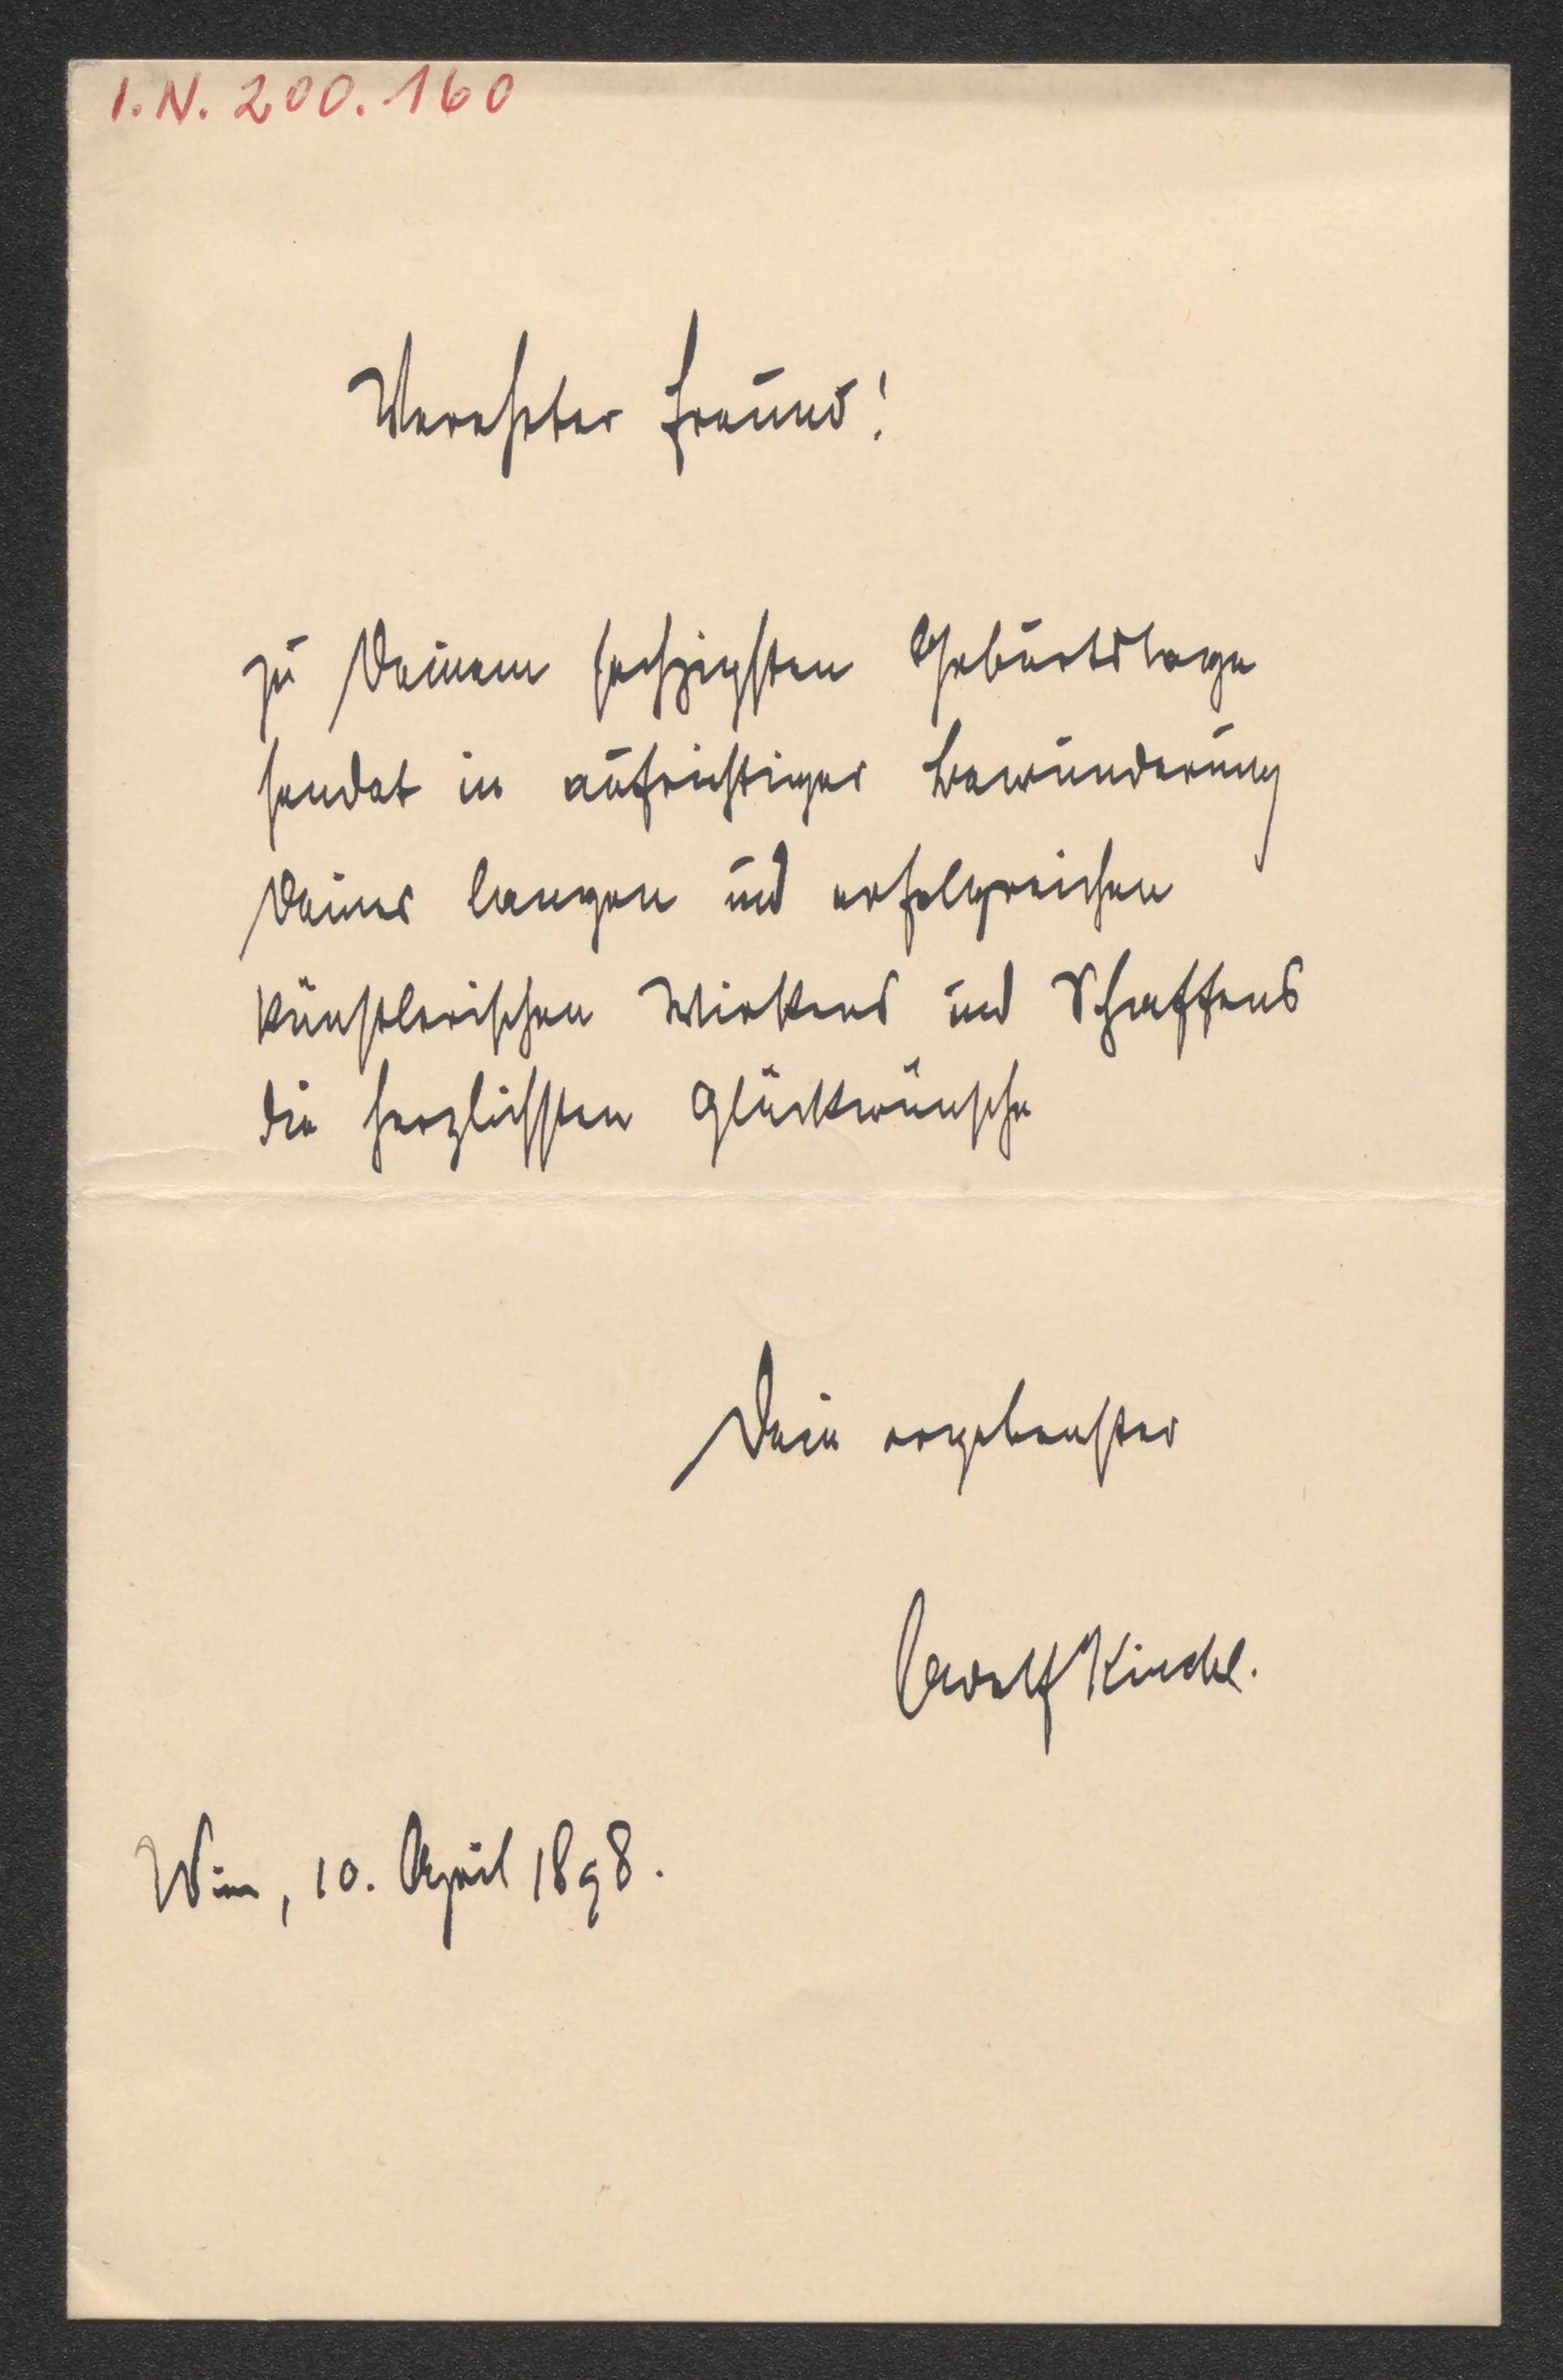 I.N. 200.160
Verehrter Freund!
zu Deinem sechzigsten Geburtstage
sendet in aufrichtiger Bewunderung
Deines langen und erfolgreichen
künstlerischen Wirkens und Schaffens
die herzlichsten Glückwünsche
Dein ergebenster
Adolf Kirchl.
Wien, 10. April 1898.